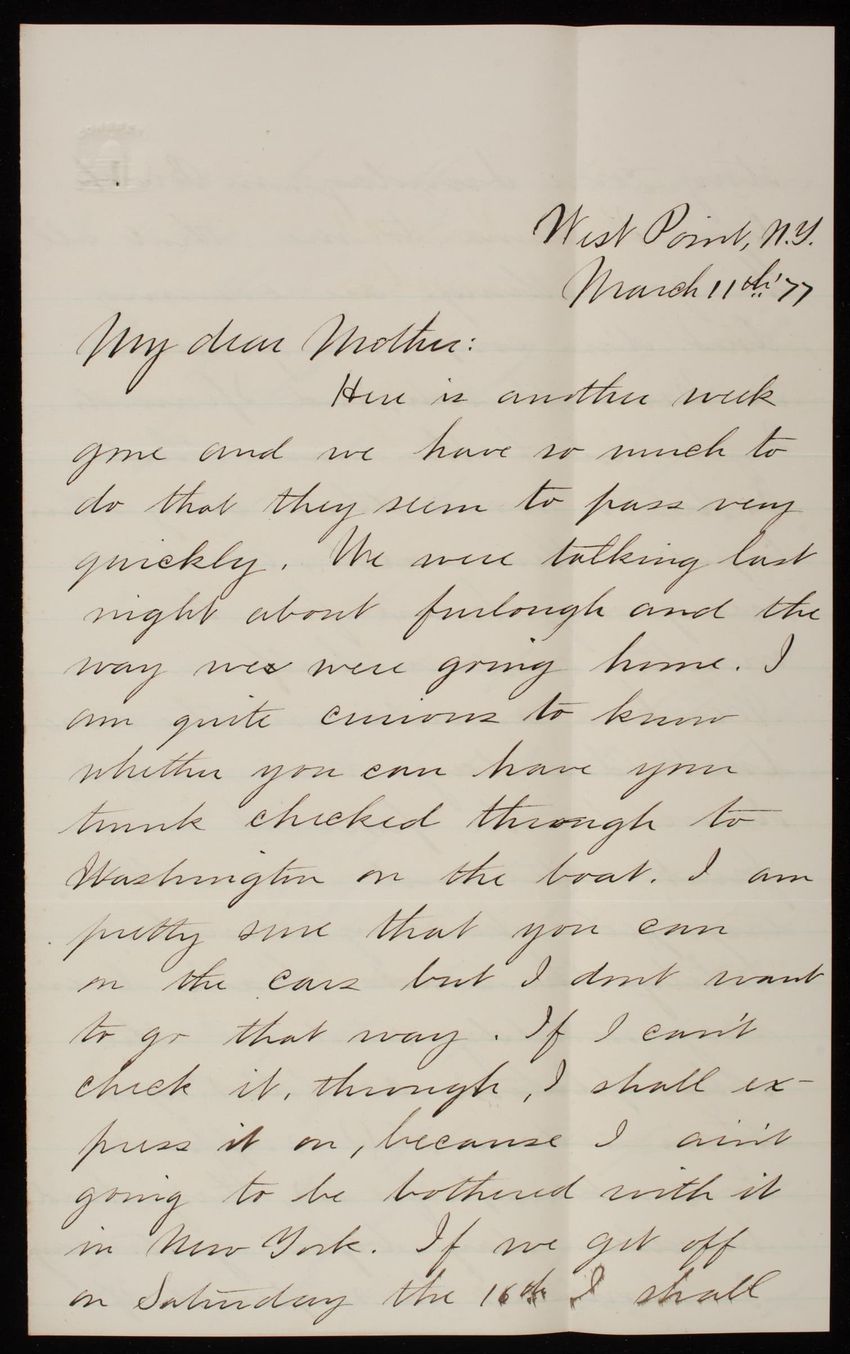 West Point, N.Y.
March 11th '77
My dear Mother:
Here is another week
gone and we have so much to
do that they seem to pass very
quickly. We were talking last
night about furlough and the
way we were going home. I
am quite curious to know
whether you can have your
trunk checked through to
Washington on the boat. I am
pretty sure that you can
on the cars but I dont want
to go that way. If I can't
check it, through, I shall ex-
press it on, because I ain't
going to be bothered with it
in New York. If we get off
on Saturday the 16th I shall